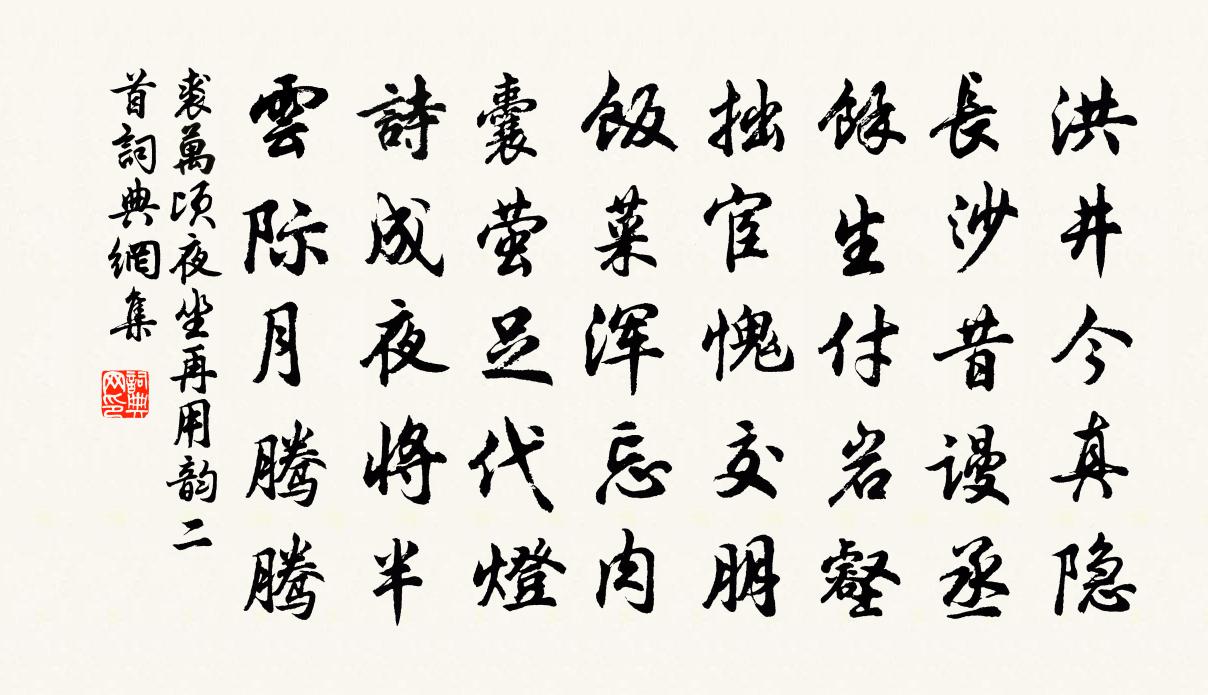 洪井今真隐
長沙昔谩丞
餘生付岩壑
拙宦愧交朋
飯菜浑忘肉
囊萤足代燈
詩成夜將半
雲际月腾腾
裘萬顷夜坐再用韵二
首詞典網集
詞典网印